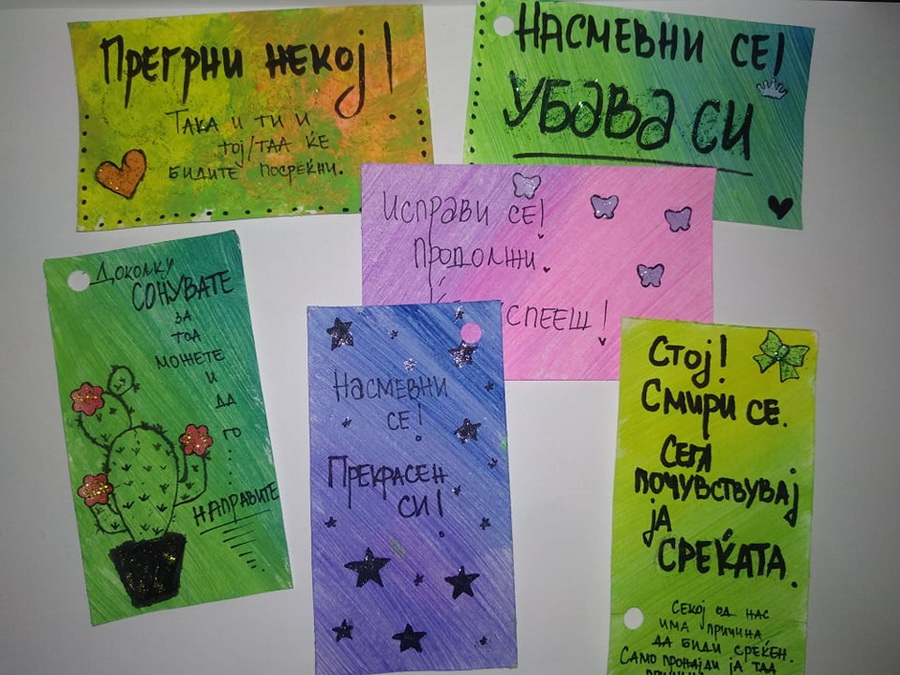 Прегрни некој!
Така и ти и
тој/таа ќе
бидите посреќни.
Насмевни се!
Убава си
Исправи се!
Продолжи.
спееш!
Доколку
сонувате
за
тоа
можете
и
да
го
направите
Насмевни
се!
Прекрасен
си!
Стој!
Смири се.
Сега
почувствувај
ја
среќата.
Секој од нас
има причина
да биди среќен.
Само пронајди ја таа